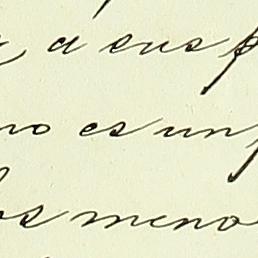 a sus p
no es un
os meno